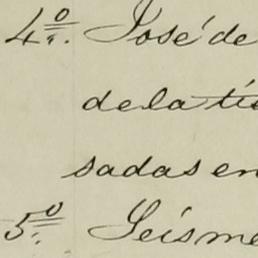 4º. José de
de la tie
sadas en
5º. Seisme